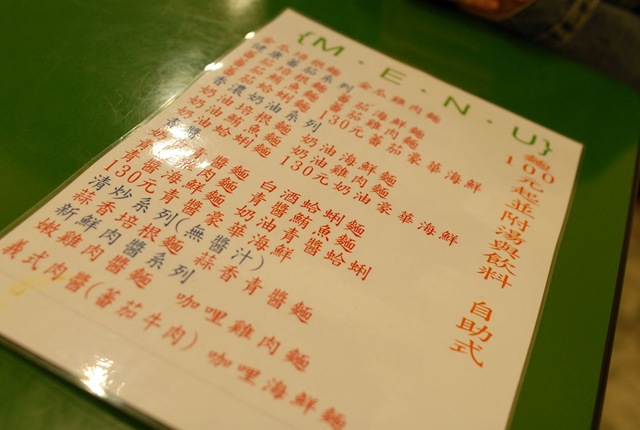 {M·E·N·U}
金瓜培根麵 金瓜雞肉麵
健康蕃茄系列
蕃茄培根麵 蕃茄海鮮麵
蕃茄鮪魚麵 蕃茄雞肉麵
蕃茄蛤蜊麵 130元蕃茄豪華海鮮
香濃奶油系列
奶油培根麵 奶油海鮮麵
奶油鮪魚麵 奶油雞肉麵
奶油蛤蜊麵 130元奶油豪華海鮮
青醬
醬麵 白酒蛤蜊麵
青醬海鮮麵 青醬鮪魚麵
130元青醬豪華海鮮 奶油青醬蛤蜊
清炒系列(無醬汁)
蒜香培根麵 蒜香青醬麵
新鮮肉醬系列
嫩雞肉醬麵 咖哩雞肉麵
義式肉醬(蕃茄牛肉) 咖哩海鮮麵
麵100元起並附湯與飲料 自助式